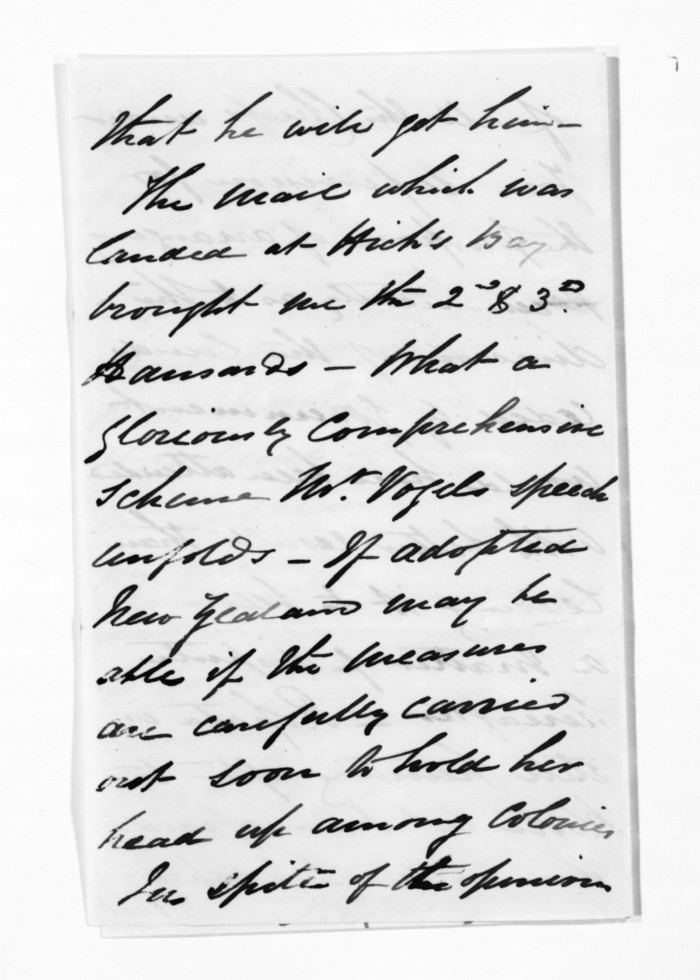 that he will get him -
The mail which was
landed at Hick's Bay
brought me the 2nd & 3rd.
Hansards - What a
gloriously comprehensive
scheme Mr. Vogels speech
unfolds - If adopted
New Zealand may be
able if the measures
are carefully carried
out soon to hold her
head up among Colonies
In spite of the opinions